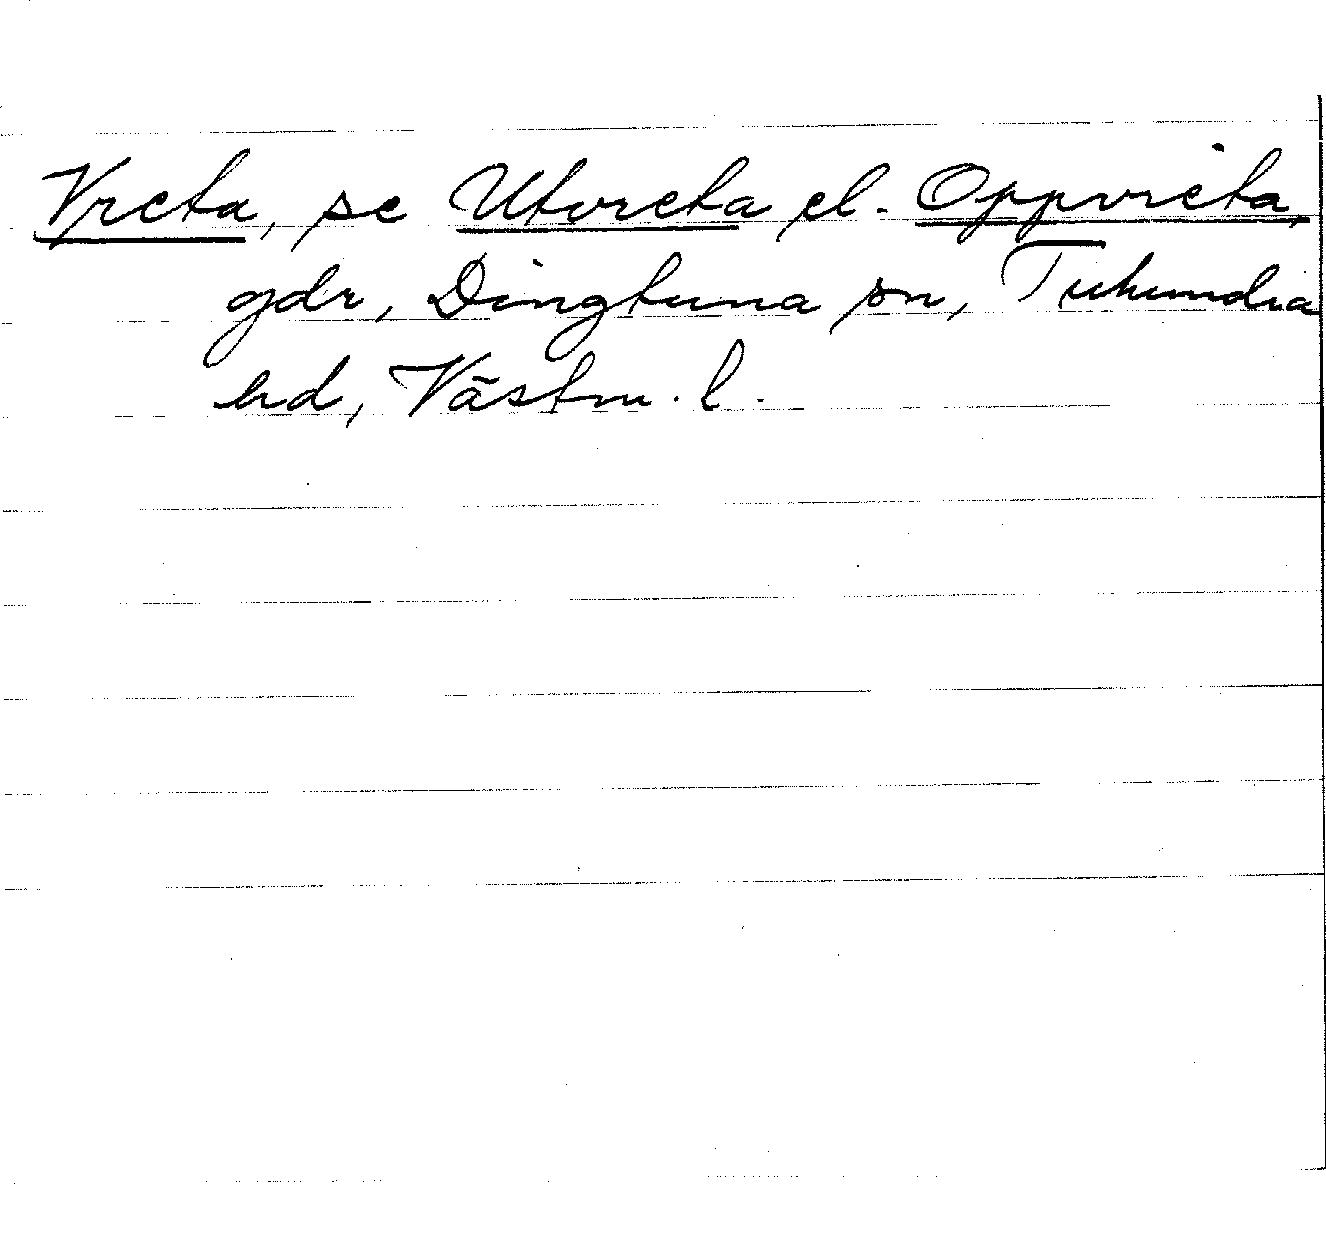 Vreta, se Utvreta el. Oppvreta,
gdr, Dingtuna sn, Tuhundra
hd, Västm. l.